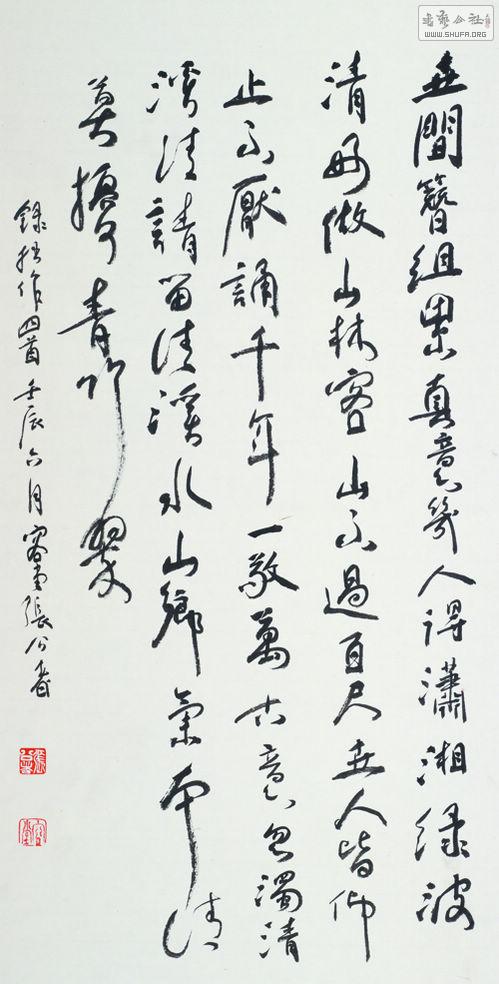 世間簪組累真意幾人得瀟湘綠波
清好做山林客山不過百尺世人皆仰
止不厭誦千年一敬萬古意濁清
溪清請留清溪水山鄉氣本清
莫擾青竹翠
錄拙作四首壬辰六月容堂張公者
書藝公社
WWW.SHUFA.ORG